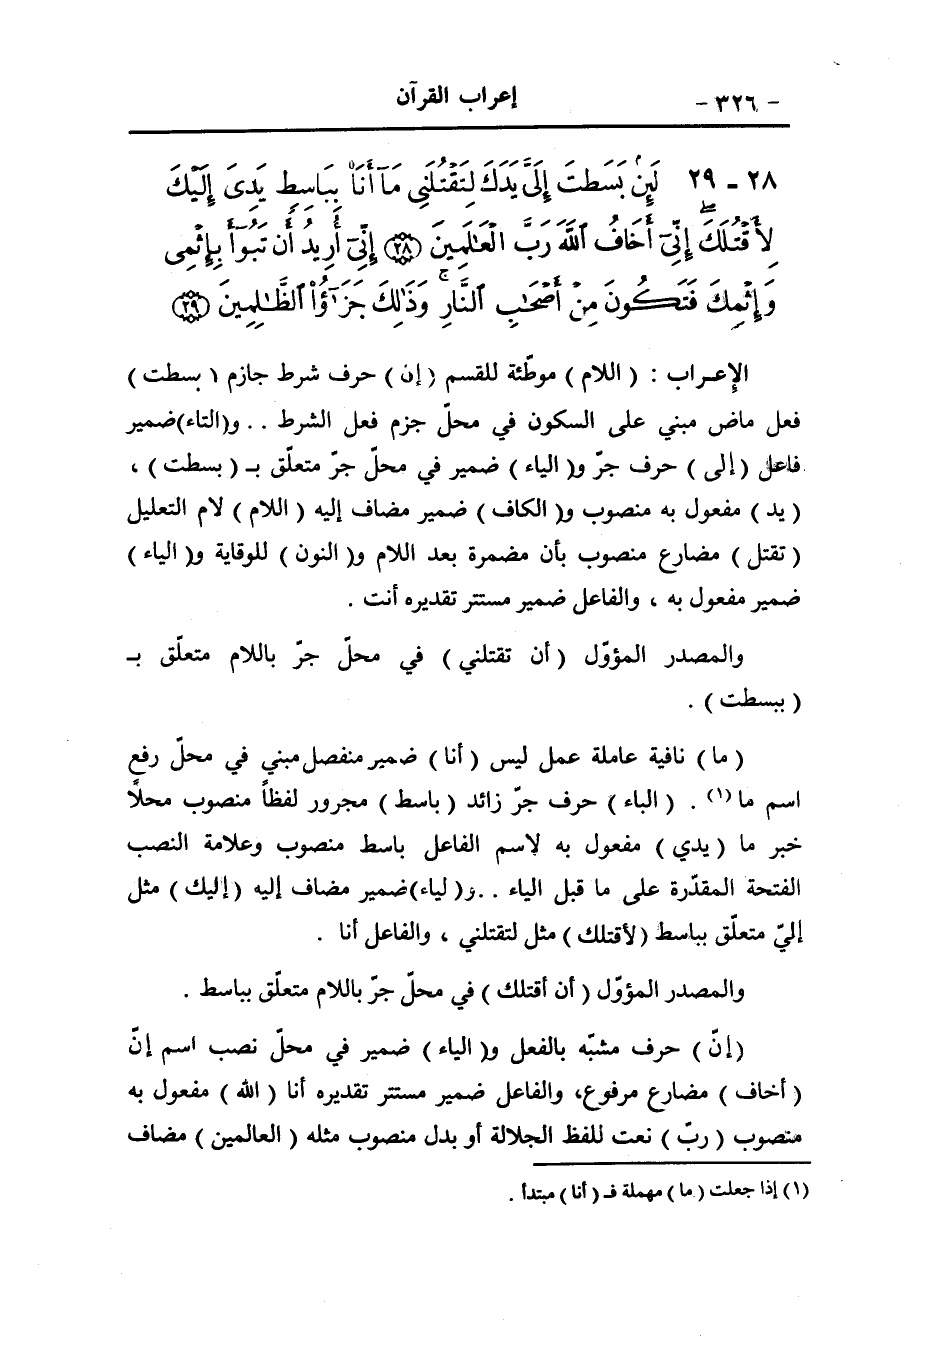 - ٣٢٦ - إعراب القرآن
٢٨ - ٢٩ لَئِنۢ بَسَطتَ إِلَىَّ يَدَكَ لِتَقْتُلَنِى مَآ أَنَا۠ بِبَاسِطٍ يَدِىَ إِلَيْكَ
لِأَقْتُلَكَ ۖ إِنِّىٓ أَخَافُ ٱللَّهَ رَبَّ ٱلْعَٰلَمِينَ ﴿٢٨﴾ إِنِّىٓ أُرِيدُ أَن تَبُوٓأَ بِإِثْمِى
وَإِثْمِكَ فَتَكُونَ مِنْ أَصْحَٰبِ ٱلنَّارِ ۚ وَذَٰلِكَ جَزَٰٓؤُا۟ ٱلظَّٰلِمِينَ ﴿٢٩﴾
الإعراب : ( اللام ) موطّئة للقسم ( إن ) حرف شرط جازم ( بسطت )
فعل ماض مبني على السكون في محلّ جزم فعل الشرط . . و(التاء)ضمير
فاعل ( إلى ) حرف جرّ و( الياء ) ضمير في محلّ جرّ متعلّق بـ ( بسطت ) ،
( يد ) مفعول به منصوب و( الكاف ) ضمير مضاف إليه ( اللام ) لام التعليل
( تقتل ) مضارع منصوب بأن مضمرة بعد اللام و( النون ) للوقاية و( الياء )
ضمير مفعول به ، والفاعل ضمير مستتر تقديره أنت .
والمصدر المؤوّل ( أن تقتلني ) في محلّ جرّ باللام متعلّق بـ
( ببسطت ) .
( ما ) نافية عاملة عمل ليس ( أنا ) ضمير منفصل مبني في محلّ رفع
اسم ما (١) . ( الباء ) حرف جرّ زائد ( باسط ) مجرور لفظاً منصوب محلاً
خبر ما ( يدي ) مفعول به لاسم الفاعل باسط منصوب وعلامة النصب
الفتحة المقدّرة على ما قبل الياء . . و( لياء)ضمير مضاف إليه ( إليك ) مثل
إليّ متعلّق بباسط (لأقتلك ) مثل لتقتلني ، والفاعل أنا .
والمصدر المؤوّل ( أن أقتلك ) في محلّ جرّ باللام متعلّق بباسط .
( إنّ ) حرف مشبّه بالفعل و( الياء ) ضمير في محلّ نصب اسم إنّ
( أخاف ) مضارع مرفوع، والفاعل ضمير مستتر تقديره أنا ( الله ) مفعول به
منصوب ( ربّ ) نعت للفظ الجلالة أو بدل منصوب مثله ( العالمين ) مضاف
(١) إذا جعلت ( ما ) مهملة فـ ( أنا ) مبتدأ .